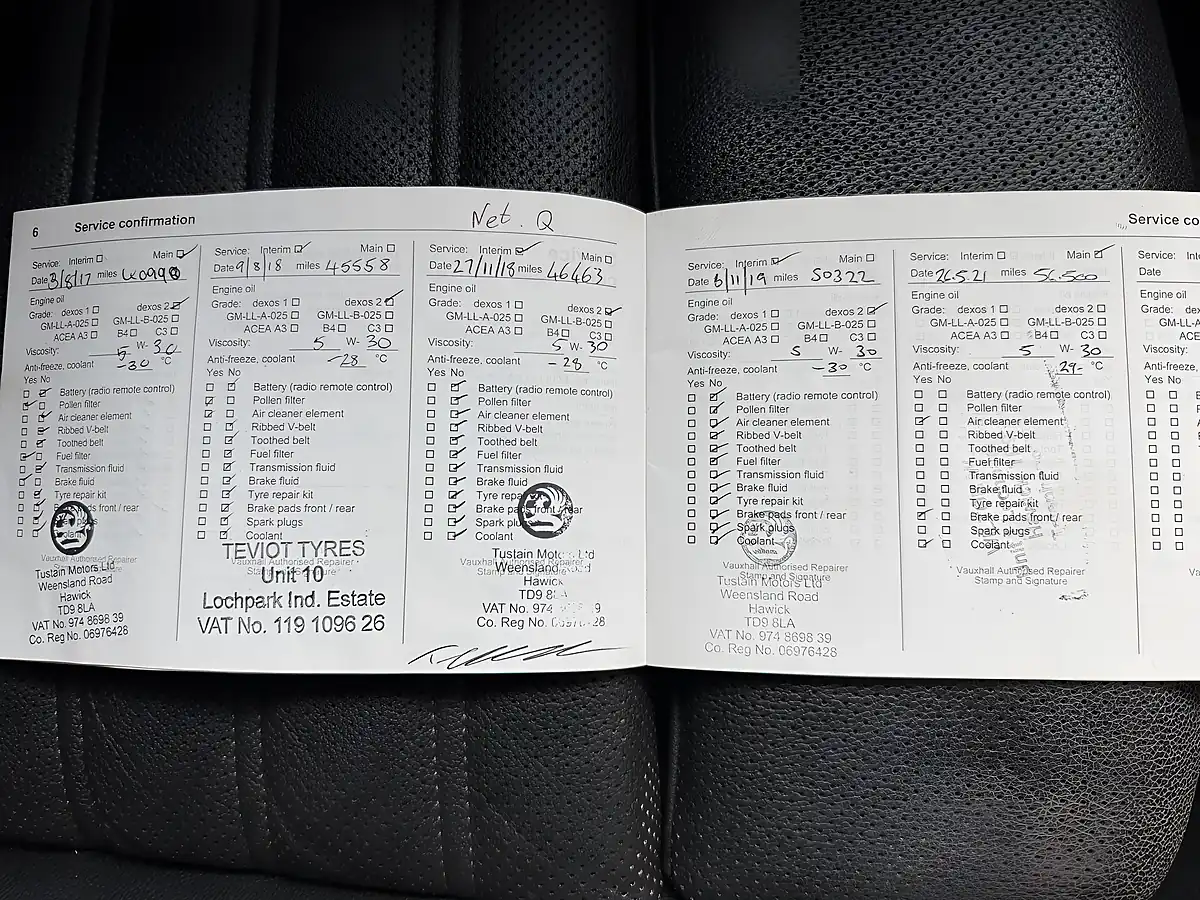 6 Service confirmation
Net. Q
Service: Interim Main
Date 3/8/17 miles 40998
Engine oil
Grade: dexos 1 dexos 2
GM-LL-A-025 GM-LL-B-025
ACEA A3 B4 C3
Viscosity: 5 W- 30
Anti-freeze, coolant -30 °C
Yes No
Battery (radio remote control)
Pollen filter
Air cleaner element
Ribbed V-belt
Toothed belt
Fuel filter
Transmission fluid
Brake fluid
Tyre repair kit
Brake pads front / rear
Vauxhall Authorised Repairer
Tustain Motors Ltd
Weensland Road
Hawick
TD9 8LA
VAT No. 974 8698 39
Co. Reg No. 06976428
Service: Interim Main
Date 9/8/18 miles 45558
Engine oil
Grade: dexos 1 dexos 2
GM-LL-A-025 GM-LL-B-025
ACEA A3 B4 C3
Viscosity: 5 W- 30
Anti-freeze, coolant -28 °C
Yes No
Battery (radio remote control)
Pollen filter
Air cleaner element
Ribbed V-belt
Toothed belt
Fuel filter
Transmission fluid
Brake fluid
Tyre repair kit
Brake pads front / rear
Spark plugs
Coolant
TEVIOT TYRES
Unit 10
Lochpark Ind. Estate
VAT No. 119 1096 26
Service: Interim Main
Date 27/11/18 miles 46463
Engine oil
Grade: dexos 1 dexos 2
GM-LL-A-025 GM-LL-B-025
ACEA A3 B4 C3
Viscosity: 5 W- 30
Anti-freeze, coolant -28 °C
Yes No
Battery (radio remote control)
Pollen filter
Air cleaner element
Ribbed V-belt
Toothed belt
Fuel filter
Transmission fluid
Brake fluid
Tyre repair
Brake pads front / rear
Spark plugs
Coolant
Tustain Motors Ltd
Weensland Road
Hawick
TD9 8
VAT No. 974
Co. Reg No.
Service co
Service: Interim Main
Date 6/11/19 miles 50322
Engine oil
Grade: dexos 1 dexos 2
GM-LL-A-025 GM-LL-B-025
ACEA A3 B4 C3
Viscosity: 5 W- 30
Anti-freeze, coolant -30 °C
Yes No
Battery (radio remote control)
Pollen filter
Air cleaner element
Ribbed V-belt
Toothed belt
Fuel filter
Transmission fluid
Brake fluid
Tyre repair kit
Brake pads front / rear
Spark plugs
Coolant
Vauxhall Authorised Repairer
Stamp and Signature
Tustain Motors Ltd
Weensland Road
Hawick
TD9 8LA
VAT No. 974 8698 39
Co. Reg No. 06976428
Service: Interim Main
Date 26.5.21 miles 56.500
Engine oil
Grade: dexos 1 dexos 2
GM-LL-A-025 GM-LL-B-025
ACEA A3 B4 C3
Viscosity: 5 W- 30
Anti-freeze, coolant 29- °C
Yes No
Battery (radio remote control)
Pollen filter
Air cleaner element
Ribbed V-belt
Toothed belt
Fuel filter
Transmission fluid
Brake fluid
Tyre repair kit
Brake pads front / rear
Spark plugs
Coolant
Vauxhall Authorised Repairer
Stamp and Signature
Service: Int
Date
Engine oil
Grade: de
GM-LL-A
ACE
Viscosity:
Anti-freeze,
Yes No